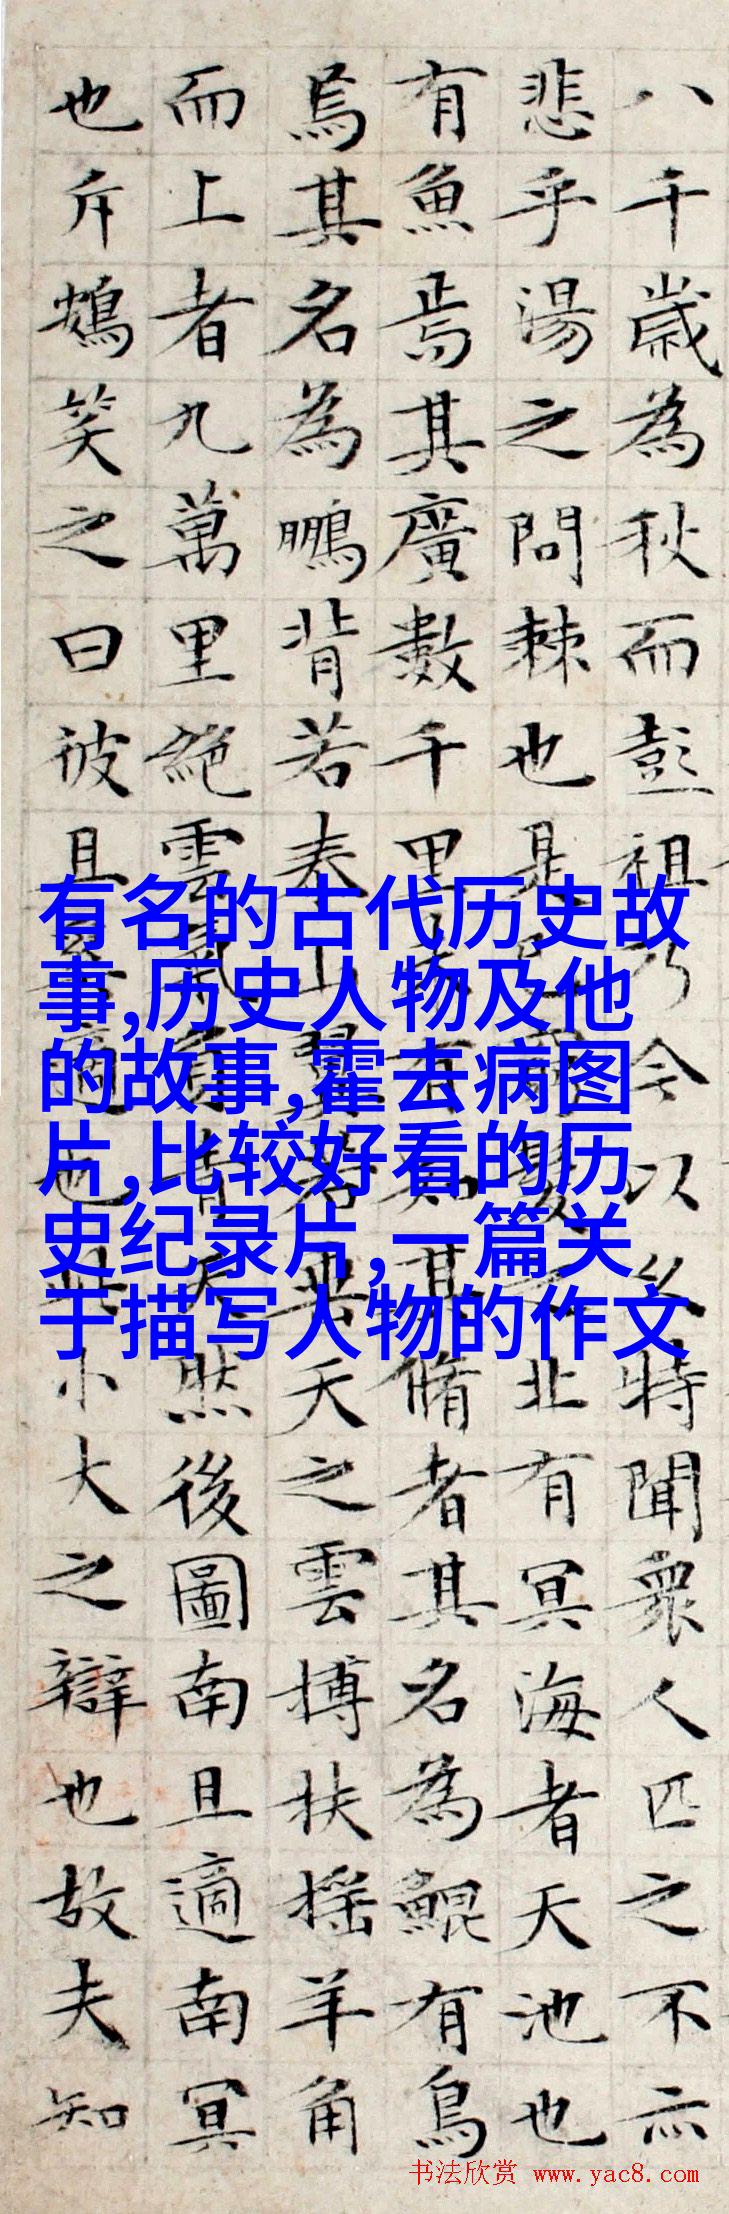 八千歲為秋而彭祖乃今以久特聞衆人匹之不亦
悲乎湯之問棘也是已窮髮之北有冥海者天池也
有魚焉其廣數千里未有知其脩者其名為鯤有鳥
焉其名為鵬背若泰山翼若垂天之雲搏扶摇羊角
而上者九萬里絕雲氣負青天然後圖南且適南冥
也斥鴳笑之曰彼且奚適也此小大之辯也故夫知
有名的古代历史故
事,历史人物及他
的故事,霍去病图
片,比较好看的历
史纪录片,一篇关
于描写人物的作文
书法欣赏 www.yac8.com